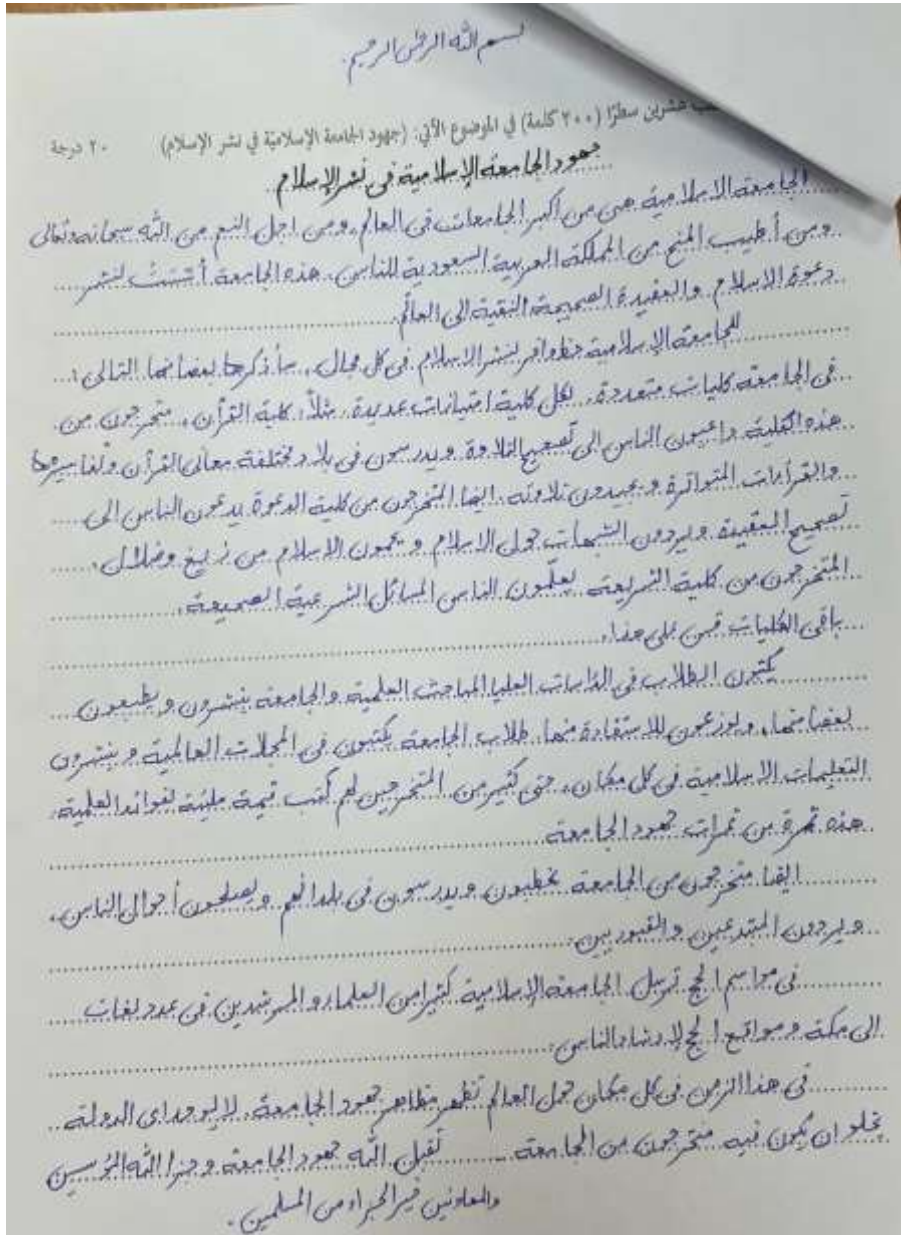 بسم الله الرحمن الرحيم.
عشرين سطرًا (٢٠٠ كلمة) في الموضوع الآتي: (جهود الجامعة الإسلامية في نشر الإسلام) ٢٠ درجة
جهود الجامعة الإسلامية في نشر الإسلام.
الجامعة الاسلامية هي من أكبر الجامعات في العالم، ومن اجل النعم من الله سبحانه وتعالى
ومن أطيب المنح من المملكة العربية السعودية للناس. هذه الجامعة أنشئت لنشر
دعوة الاسلام والعقيدة الصحيحة النقية الى العالم.
للجامعة الإسلامية حظ وافر لنشر الاسلام في كل مجال، سأذكرها بعضا منها التالى:
في الجامعة كليات متعددة. لكل كلية امتيازات عديدة. مثلاً: كلية القرآن، متخرجون من
هذه الكلية داعيون الناس الى تصحيح التلاوة ويدرسون في بلاد مختلفة معانى القرأن وتفاسيرها
والقرأءات المتواترة و يجيدون تلاوته. ايضا المتخرجون من كلية الدعوة يدعون الناس الى
تصحيح العقيدة ويردون الشبهات حول الاسلام و يحمون الاسلام من زيغ وضلال.
المتخرجون من كلية الشريعة يعلّمون الناس المسائل الشرعية الصحيحة.
باقى الكليات قس على هذا.
يكتبون الطلاب في الدراسات العليا المباحث العلمية والجامعة ينشرون و يطبعون
بعضا منها، ويوزعون للاستفادة منها. طلاب الجامعة يكتبون في المجلات العالمية و ينشرون
التعليمات الاسلامية في كل مكان، حتى كثير من المتخرجين لهم كتب قيمة مليئة لفوائد العلمية.
هذه ثمرة من ثمرات جهود الجامعة
ايضا متخرجون من الجامعة يخطبون ويدرسون في بلدانهم و يصلحون أحوال الناس،
ويردون المبتدعين والقبوريين.
في مواسم الحج ترسل الجامعة الإسلامية كثيرا من العلماء و المرشدين في عدد لغات
الى مكة ومواقع الحج لإرشاد الناس.
في هذا الزمن في كل مكان حول العالم تظهر مظاهر جهود الجامعة. لا يوجد اى الدولة
يخلو ان يكون فيه متخرجون من الجامعة تقبل الله جهود الجامعة و جزا الله المؤسسين
والمعاونين خير الجزاء من المسلمين.